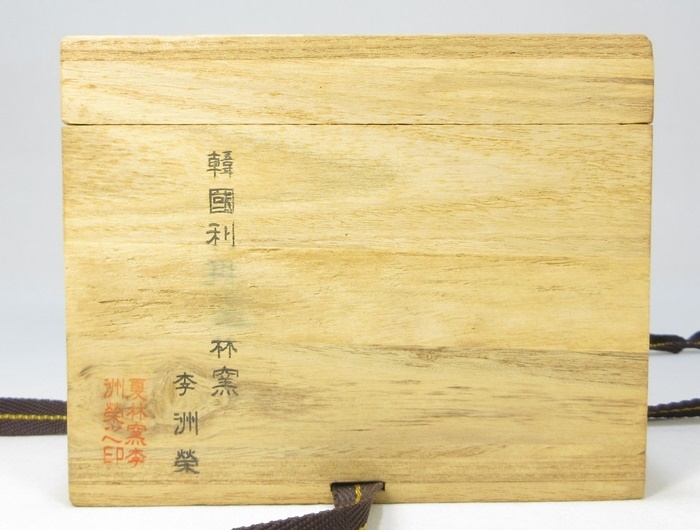 韓國利林窯
李洲榮
夏林窯李
洲榮之印